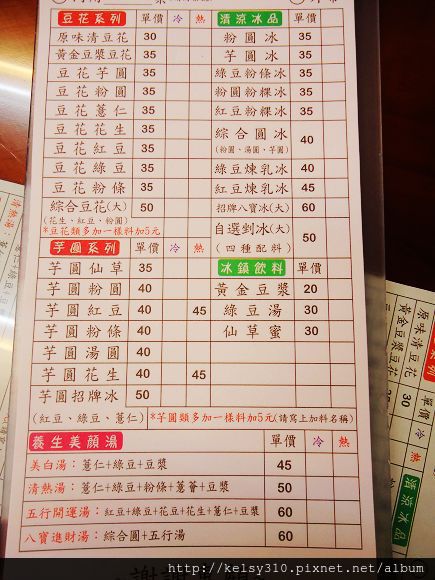 豆花系列 單價 冷 熱
原味清豆花 30
黃金豆漿豆花 35
豆花芋圓 35
豆花粉圓 35
豆花薏仁 35
豆花花生 35
豆花紅豆 35
豆花綠豆 35
豆花粉條 35
綜合豆花(大) 50
(花生、紅豆、粉圓)
*豆花類多加一樣料加5元
芋圓系列 單價 冷 熱
芋圓仙草 35
芋圓粉圓 40
芋圓紅豆 40 45
芋圓粉條 40
芋圓湯圓 40
芋圓花生 40 45
芋圓招牌冰 50
(紅豆、綠豆、薏仁)
*芋圓類多加一樣料加5元(請寫上加料名稱)
清涼冰品 單價
粉圓冰 35
芋圓冰 35
綠豆粉條冰 35
粉圓粉粿冰 35
紅豆粉粿冰 35
綜合圓冰 40
(粉圓、湯圓、芋圓)
綠豆煉乳冰 40
紅豆煉乳冰 45
招牌八寶冰(大) 60
自選剉冰(大) 50
(四種配料)
冰鎮飲料 單價
黃金豆漿 20
綠豆湯 30
仙草蜜 30
養生美顏湯 單價 冷 熱
美白湯：薏仁+綠豆+豆漿 45
清熱湯：薏仁+綠豆+粉條+蘆薈+豆漿 50
五行開運湯：紅豆+綠豆+花豆+花生+薏仁+豆漿 60
八寶進財湯：綜合圓+五行湯 60
系列 單價
原味清豆花 30
黃金豆漿豆花 35
單價 冷 熱
清涼冰品
http://kelsy310.pixnet.net/album